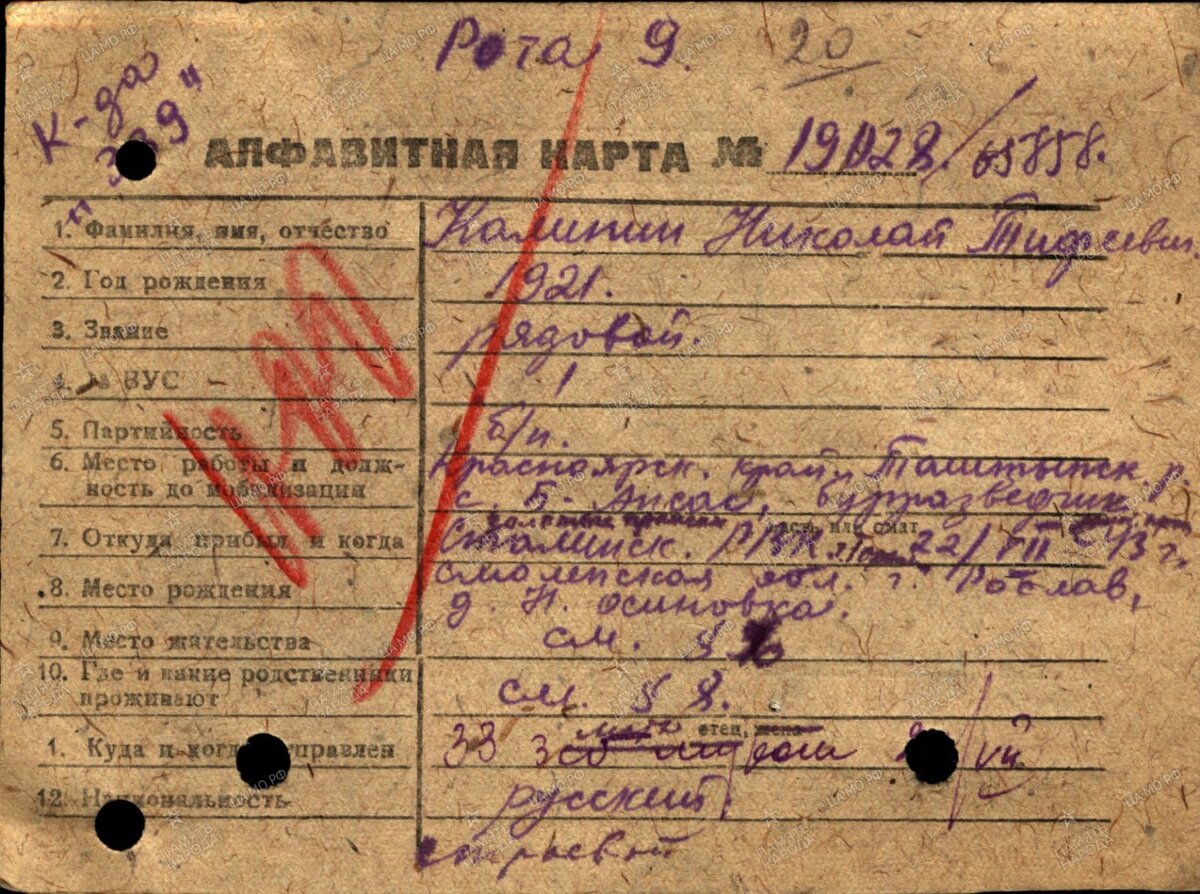 Рота 9. 20
К-да
"389"
АЛФАВИТНАЯ КАРТА № 19028/65858.
1. Фамилия, имя, отчество Калинин Николай Тифеевич
2. Год рождения 1921.
3. Звание рядовой.
4. № ВУС 1
5. Партийность б/п.
6. Место работы и долж-
ность до мобилизации
Красноярск. край, Таштыпск. р.
с. Б. Ансас, бурразведчик
золотые прииски
часть или смат
7. Откуда прибыл и когда Сталинск. РВК 22/VII 43 г.
8. Место рождения Смоленская обл. г. Рославл,
д. Н. Осиновка.
9. Место жительства см. §
10. Где и какие родственники
проживают
см. § 8.
мать отец, жена
1. Куда и когда отправлен 33 зсб 2/VII
12. Национальность русский
строевой